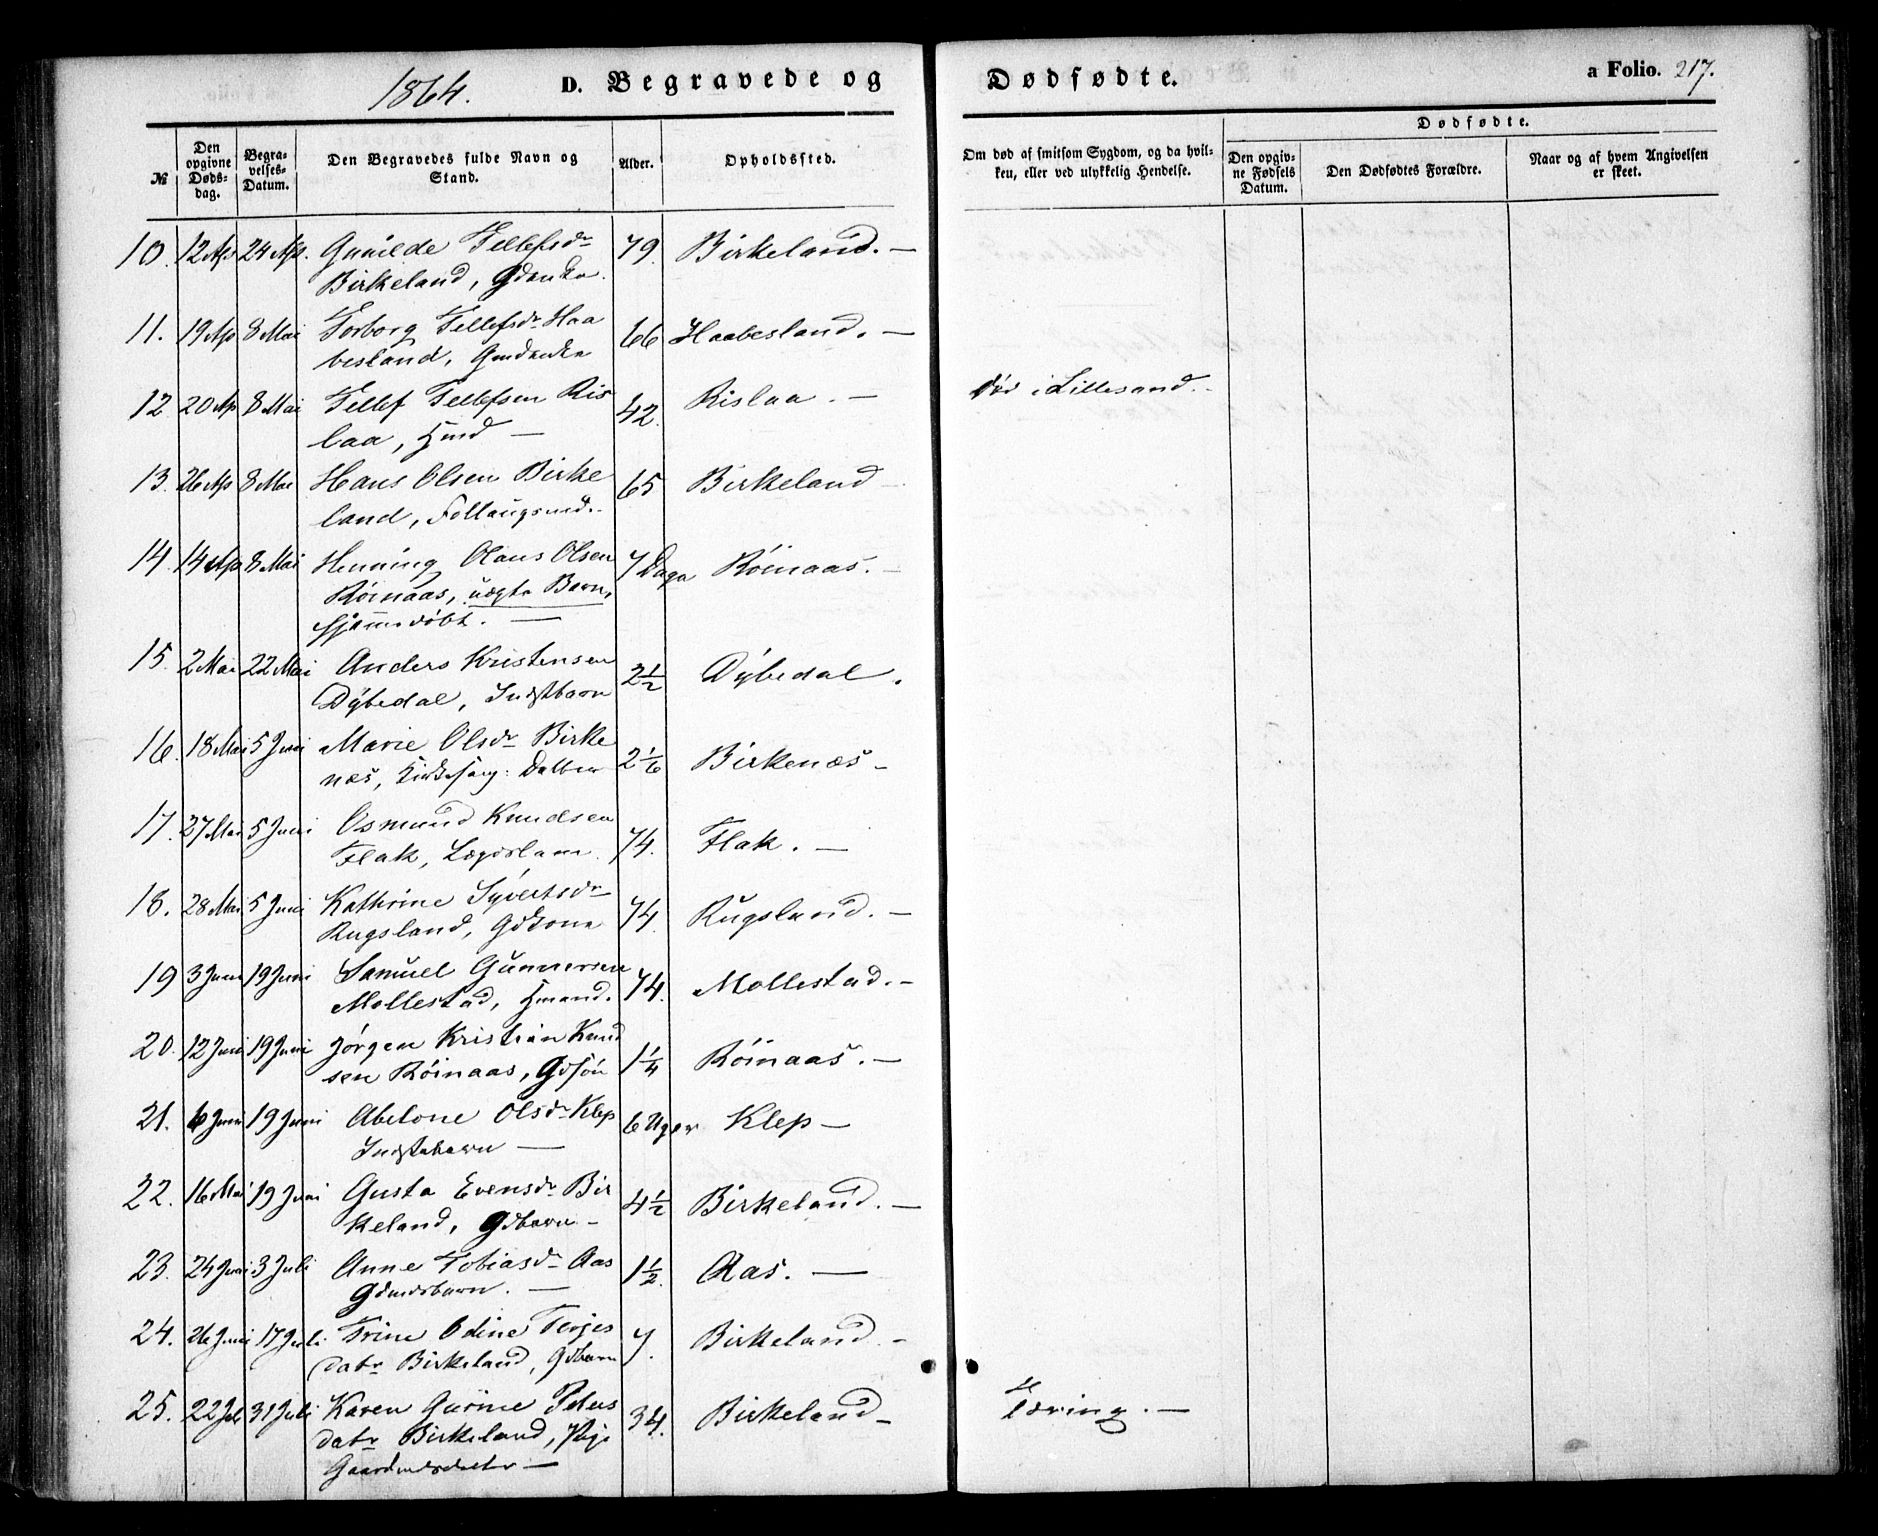 1864. D. Begravede og Dødfødte. a Folio. 217.
№ Den opgivne Dødsdag. Begravelses-Datum. Den Begravedes fulde Navn og Stand. Alder. Opholdssted. Om død af smitsom Sygdom, og da hvilken, eller ved ulykkelig Hendelse. Dødfødte.
Den opgivne Fødsels Datum. Den Dødfødtes Forældre. Naar og af hvem Angivelsen er skeet.
10. 12 Ap 24 Ap. Gunilde Tellefsdr 79. Birkeland. —
Birkeland, Gdenke.
11. 19 Ap 8 Mai Torborg Tellefsdr Haa 66 Haabesland. —
besland, Gmdenke
12 20 Ap 8 Mai Tellef Tellefsen Ris 42. Rislaa. — død i Lillesand. -
laa, Hmd —
13. 26 Ap 8 Mai Hans Olsen Birke 65 Birkeland —
land, Follaugsmd.
14. 14 Ap 8 Mai Henning Olaus Olsen 7 Daga Røinaas. —
Røinaas, uægte Barn,
hjemmedøbt. —
15. 2 Mai 22 Mai Anders Kristensen 2½ Dybedal.
Dybedal, Indstbarn
16. 18 Mai 5 Juni Marie Olsdr Birke 2⅙ Birkenæs -
næs, Kirkesang:
17. 27 Mai 5 Juni Osmund Knudsen 74. Flak. —
Flak, Lægdslam
18. 28 Mai 5 Juni Kathrine Syvertsdr 74. Rugsland. —
Rugsland, Gdkone
19 3 Juni 19 Juni Samuel Gunnersen 74. Mollestad. -
Mollestad, Hmand.
20. 12 Juni 19 Juni Jørgen Kristian Knud 1¼ Røinaas. —
sen Røinaas, Gdsøn
21. 6 Juni 19 Juni Abelone Olsdr Klep 6 Uger Klep —
Indstebarn —
22. 16 Mai 19 Juni Gusta Evensdr Bir 4½ Birkeland. —
keland, Gdbarn -
23. 24 Juni 3 Juli Anne Tobiasdr Aas 1½. Aas. —
Gdmdsbarn. —
24. 26 Juni 17 Juli Trine Odine Terjes 7. Birkeland. -
datr Birkeland, Gdbarn
25. 22 Jul 31 Juli Karen Gurine Peters 34. Birkeland - Tæring. —
datr Birkeland, Pige
Gaardmdsdatter —